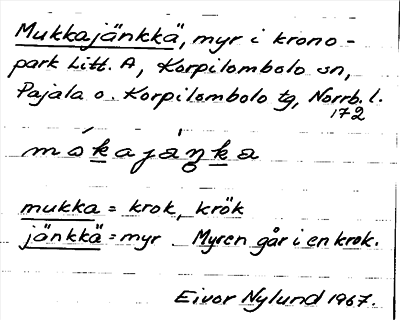 Mukkajänkkä, myr i krono-
park Litt. A, Korpilombolo sn,
Pajala o. Korpilombolo tg, Norrb. l.
172
mukka = krok, krök
jänkkä = myr Myren går i en krok.
Eivor Nylund 1967.